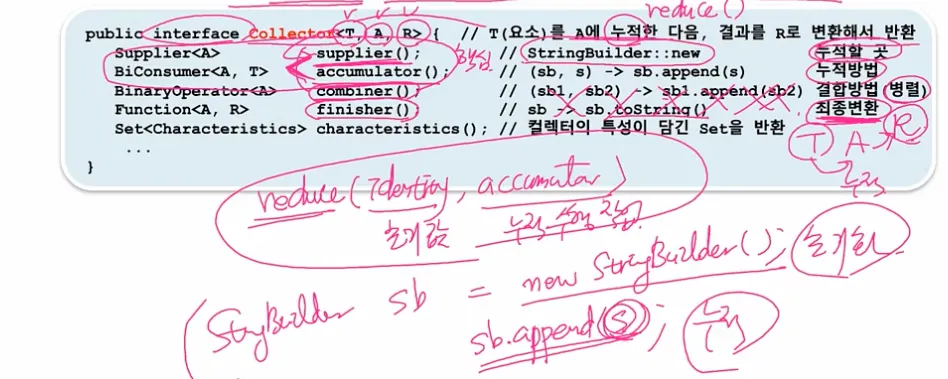 reduce()
public interface Collector<T, A, R> { // T(요소)를 A에 누적한 다음, 결과를 R로 변환해서 반환
Supplier<A> supplier(); // StringBuilder::new 누적할 곳
BiConsumer<A, T> accumulator(); 핵심 // (sb, s) -> sb.append(s) 누적방법
BinaryOperator<A> combiner(); // (sb1, sb2) -> sb1.append(sb2) 결합방법 (병렬)
Function<A, R> finisher(); // sb -> sb.toString() 최종변환
Set<Characteristics> characteristics(); // 컬렉터의 특성이 담긴 Set을 반환
...
}
T A R
누적
reduce(Identity, accumutar)
초기값 누적 수행 작업
StringBuilder sb = new StringBuilder(); 초기화
sb.append(s); 누적